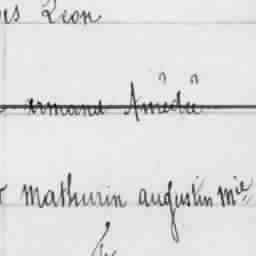 Leon
armand Amédée
mathurin augustin Mie